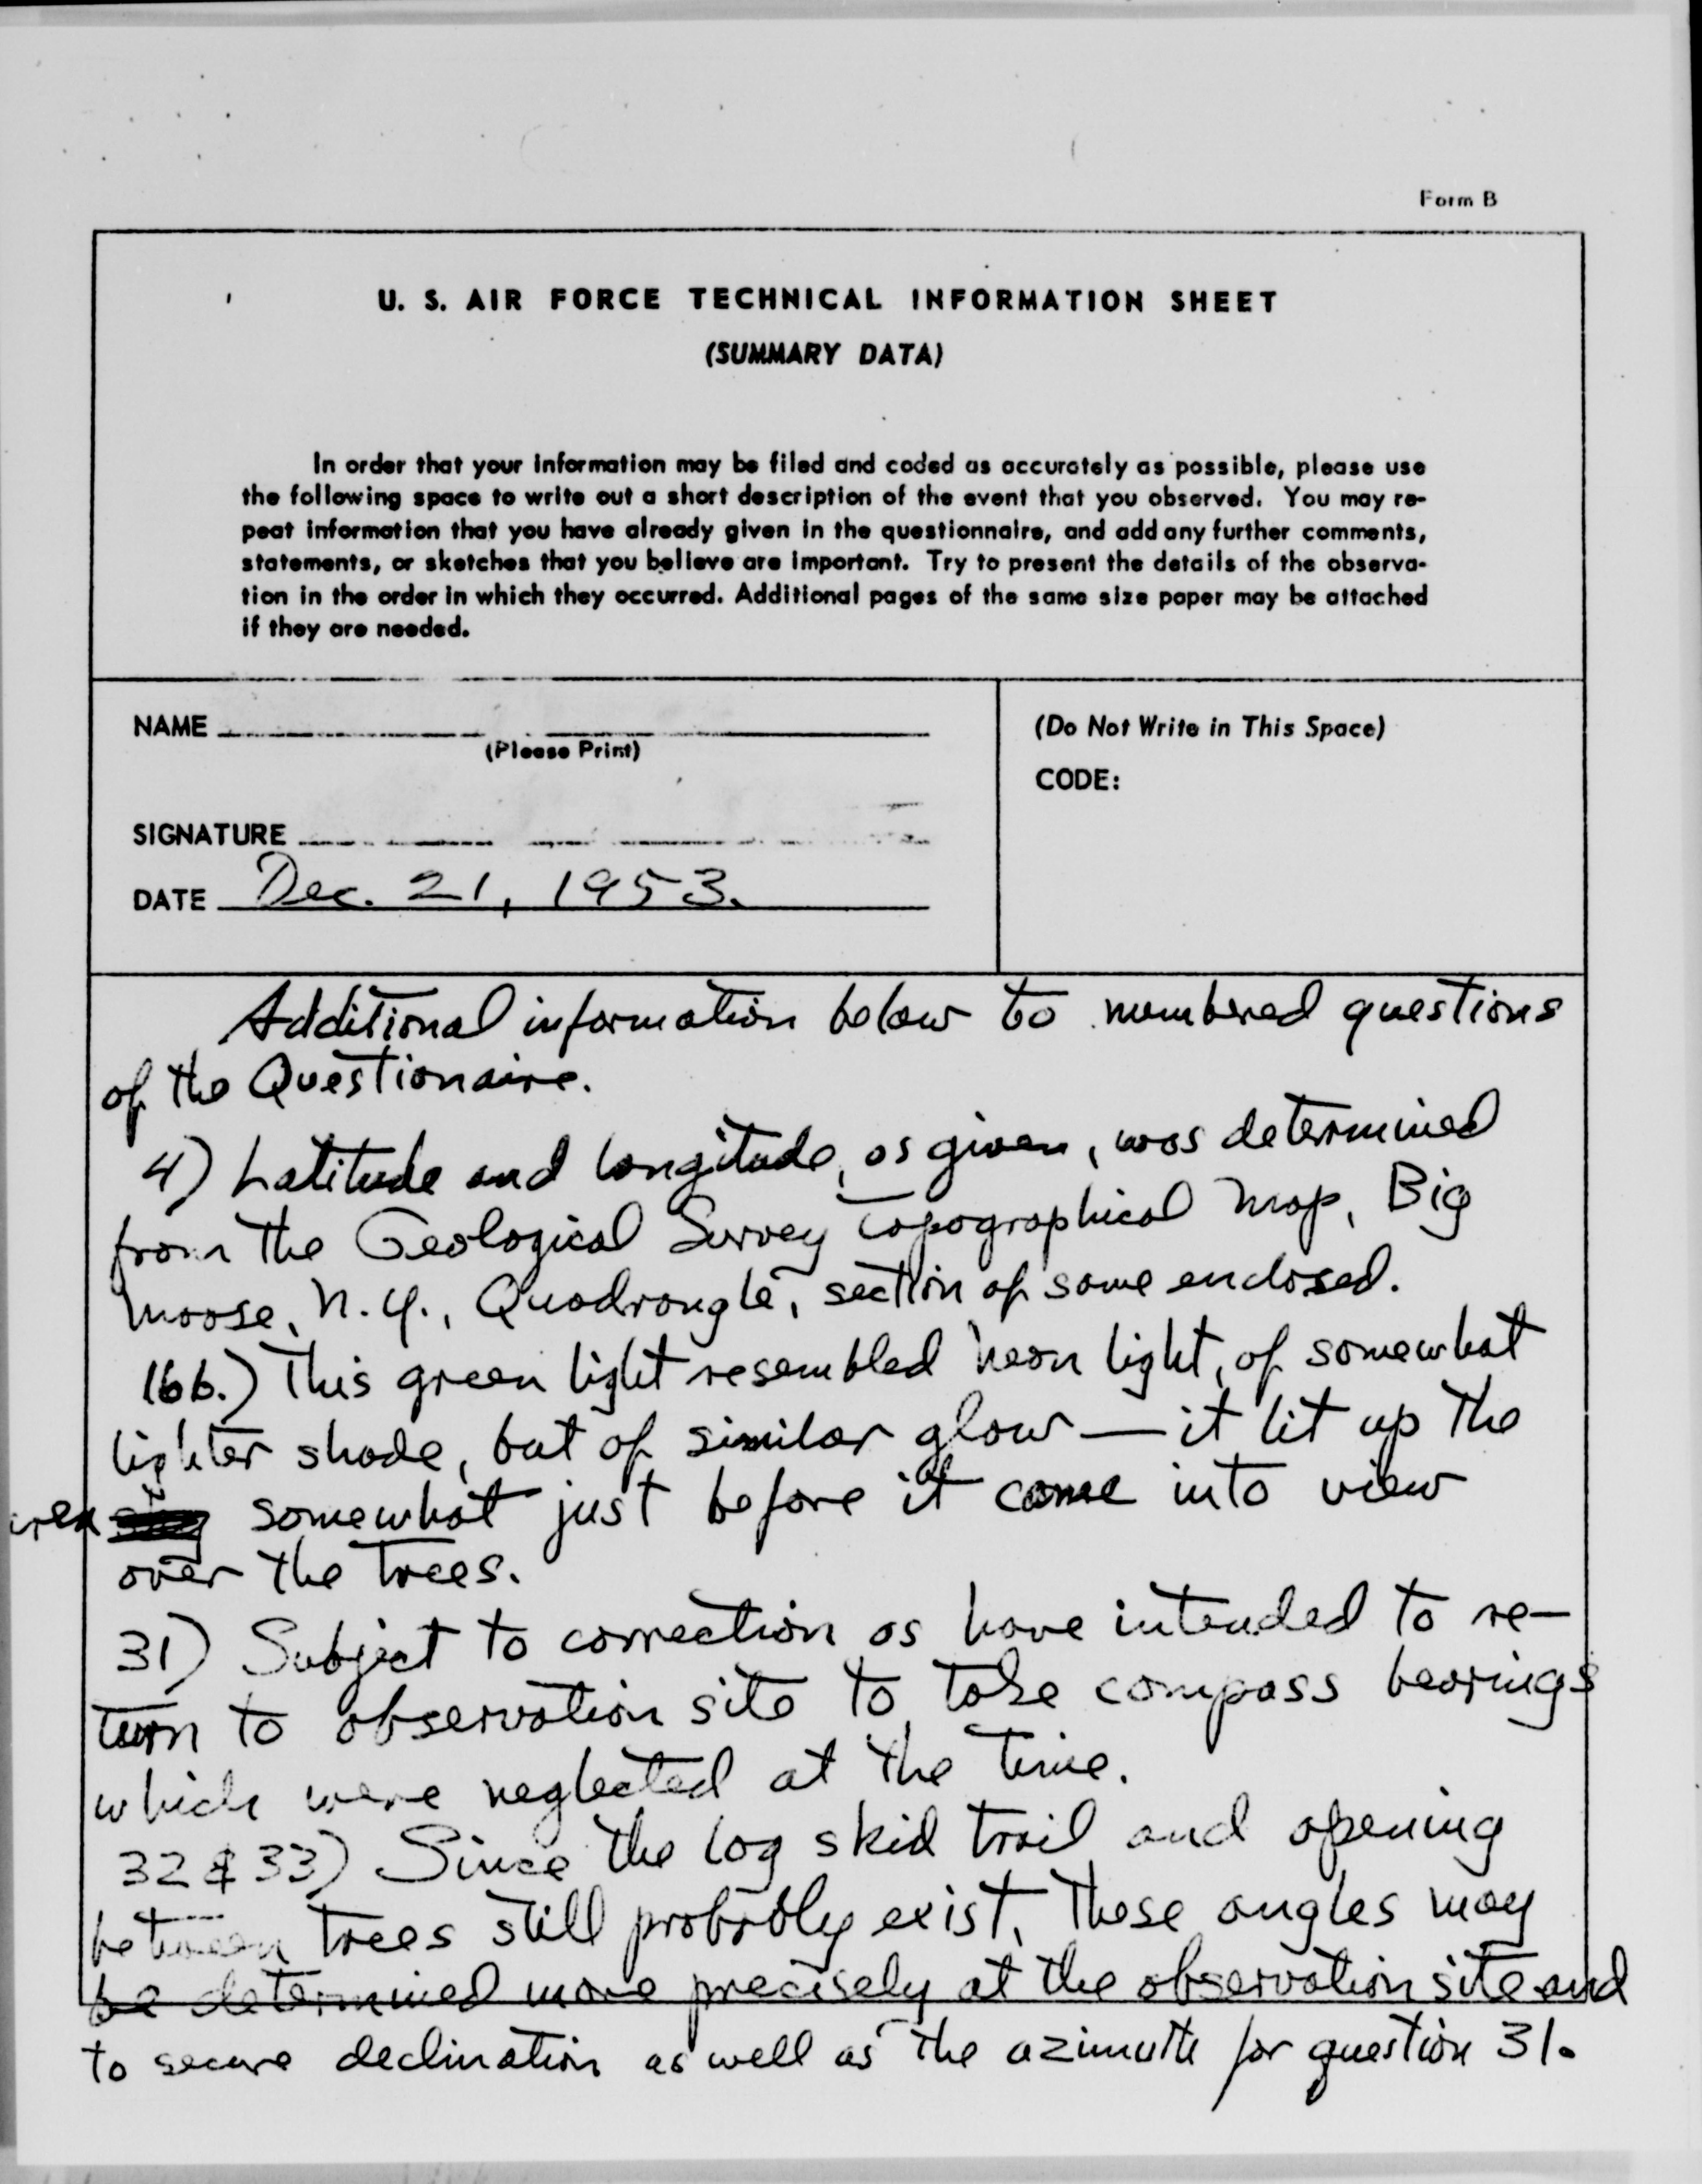 Form B
U. S. AIR FORCE TECHNICAL INFORMATION SHEET
(SUMMARY DATA)
In order that your information may be filed and coded as accurately as possible, please use
the following space to write out a short description of the event that you observed. You may re-
peat information that you have already given in the questionnaire, and add any further comments,
statements, or sketches that you believe are important. Try to present the details of the observa-
tion in the order in which they occurred. Additional pages of the same size paper may be attached
if they are needed.
NAME
(Please Print)
SIGNATURE
DATE Dec. 21, 1953.
(Do Not Write in This Space)
CODE:
Additional information below to numbered questions
of the Questionaire.
4) Latitude and longitude, as given, was determined
from the Geological Survey Topographical Map, Big
Moose, N.Y., Quadrangle, section of same enclosed.
16b.) This green light resembled neon light, of somewhat
lighter shade, but of similar glow — it lit up the
somewhat just before it came into view
over the trees.
31) Subject to correction as have intended to re-
turn to observation site to take compass bearings
which were neglected at the time.
32 & 33) Since the log skid trail and opening
between trees still probably exist, these angles may
be determined more precisely at the observation site and
to secure declination as well as the azimuth for question 31.